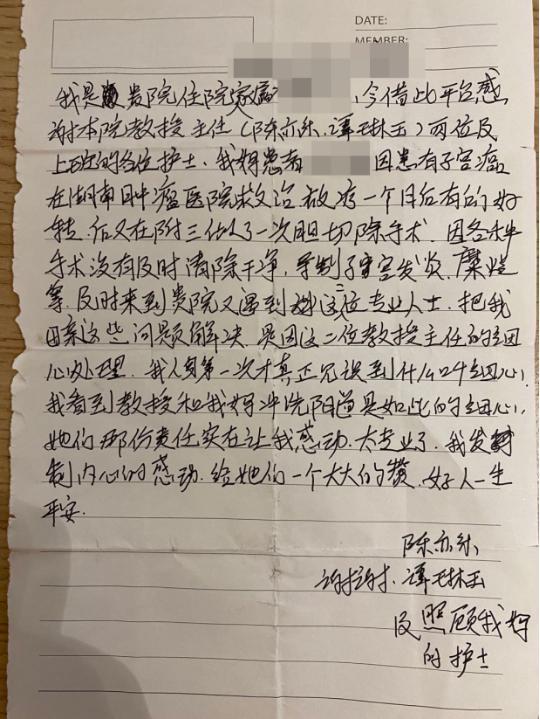 DATE:
MEMBER:
我是贵院住院家属 ，今借此平台感
谢本院教授主任（陈亦乐、谭琳玉）两位及
上班的各位护士。我妈患者 因患有子宫癌
在湖南肿瘤医院救治。放疗一个月后有的好
转，后又在附三做了一次胆切除手术，因各种
手术没有及时清除干净，导制子宫发炎、糜烂
等，及时来到贵院又遇到 这二位专业人士，把我
母亲这些问题解决，是因这二位教授主任的细
心处理，我人身第一次才真正见识到什么叫细心，
我看到教授和我妈冲洗阴道是如此的细心，
她们那份责任实在让我感动，太专业了，我发
制内心的感动，给她们一个大大的赞，好人一生
平安。
陈亦乐
谢谢、谭琳玉
及照顾我妈
的护士